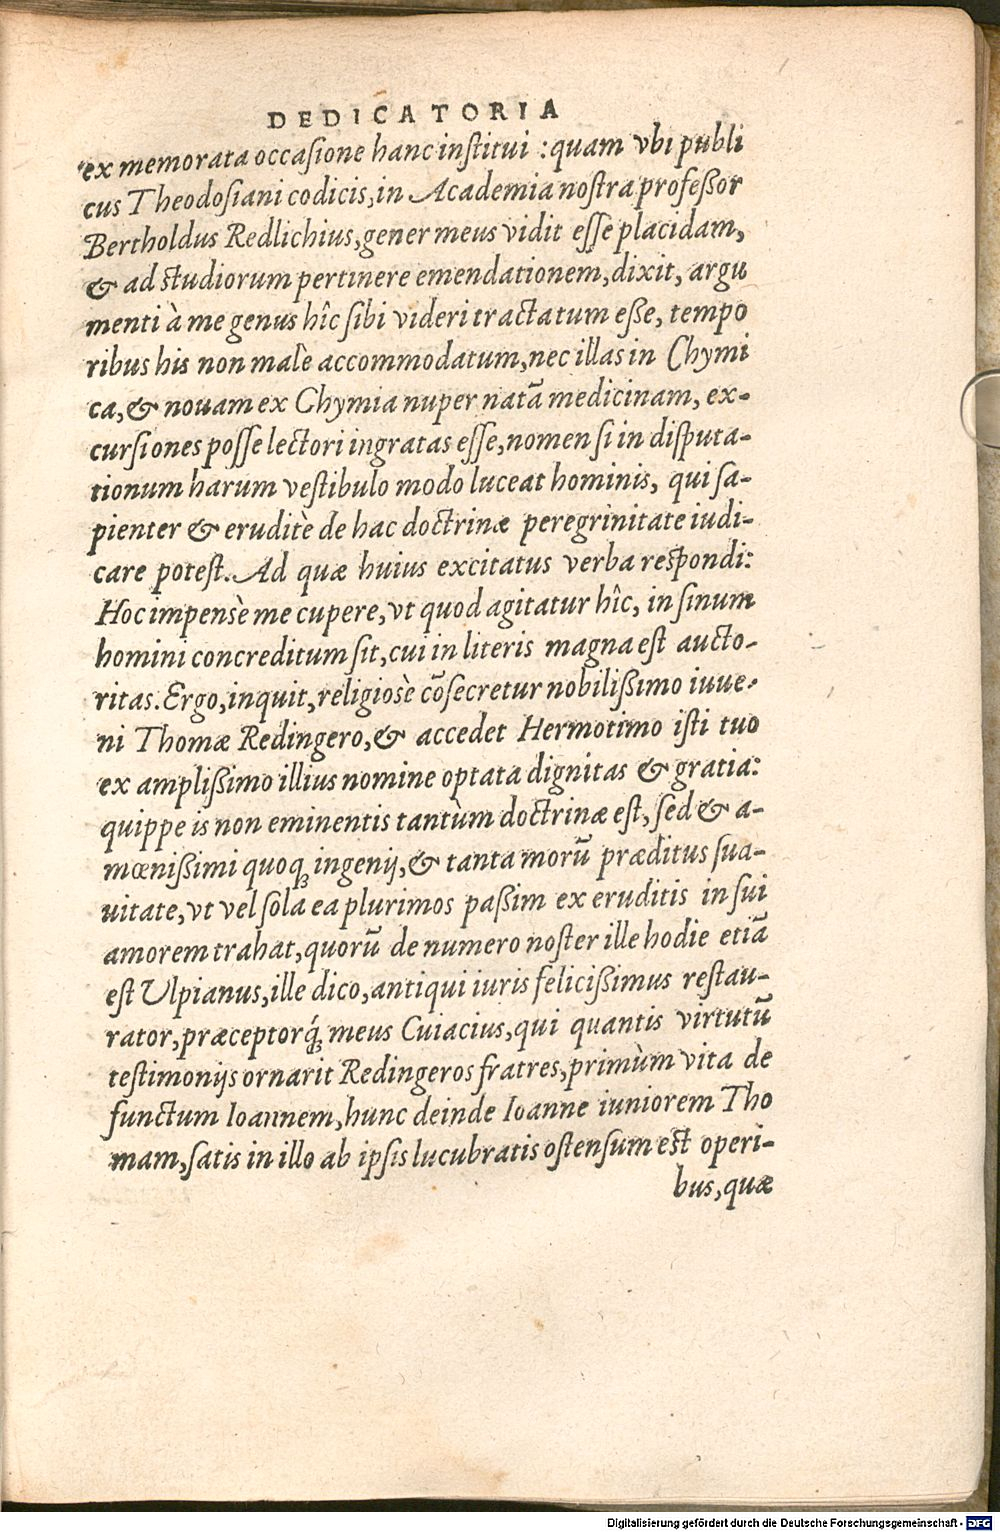 DEDICATORIA
ex memorata occasione hanc institui : quam vbi publi
cus Theodosiani codicis, in Academia nostra professor
Bertholdus Redlichius, gener meus vidit esse placidam,
& ad studiorum pertinere emendationem, dixit, argu
menti à me genus hîc sibi videri tractatum esse, tempo
ribus his non malè accommodatum, nec illas in Chymi
ca, & nouam ex Chymia nuper natā medicinam, ex-
cursiones posse lectori ingratas esse, nomen si in disputa-
tionum harum vestibulo modo luceat hominis, qui sa-
pienter & eruditè de hac doctrinæ peregrinitate iudi-
care potest. Ad quæ huius excitatus verba respondi:
Hoc impensè me cupere, vt quod agitatur hîc, in sinum
homini concreditum sit, cui in literis magna est aucto-
ritas. Ergo, inquit, religiosè cōsecretur nobilißimo iuue-
ni Thomæ Redingero, & accedet Hermotimo isti tuo
ex amplißimo illius nomine optata dignitas & gratia:
quippe is non eminentis tantùm doctrinæ est, sed & a-
mœnißimi quoq; ingenij, & tanta morū præditus sua-
uitate, vt vel sola ea plurimos paßim ex eruditis in sui
amorem trahat, quorū de numero noster ille hodie etiā
est Ulpianus, ille dico, antiqui iuris felicißimus restau-
rator, præceptorq́; meus Cuiacius, qui quantis virtutū
testimonijs ornarit Redingeros fratres, primùm vita de
functum Ioannem, hunc deinde Ioanne iuniorem Tho
mam, satis in illo ab ipsis lucubratis ostensum est operi-
bus, quæ
Digitalisierung gefördert durch die Deutsche Forschungsgemeinschaft - DFG